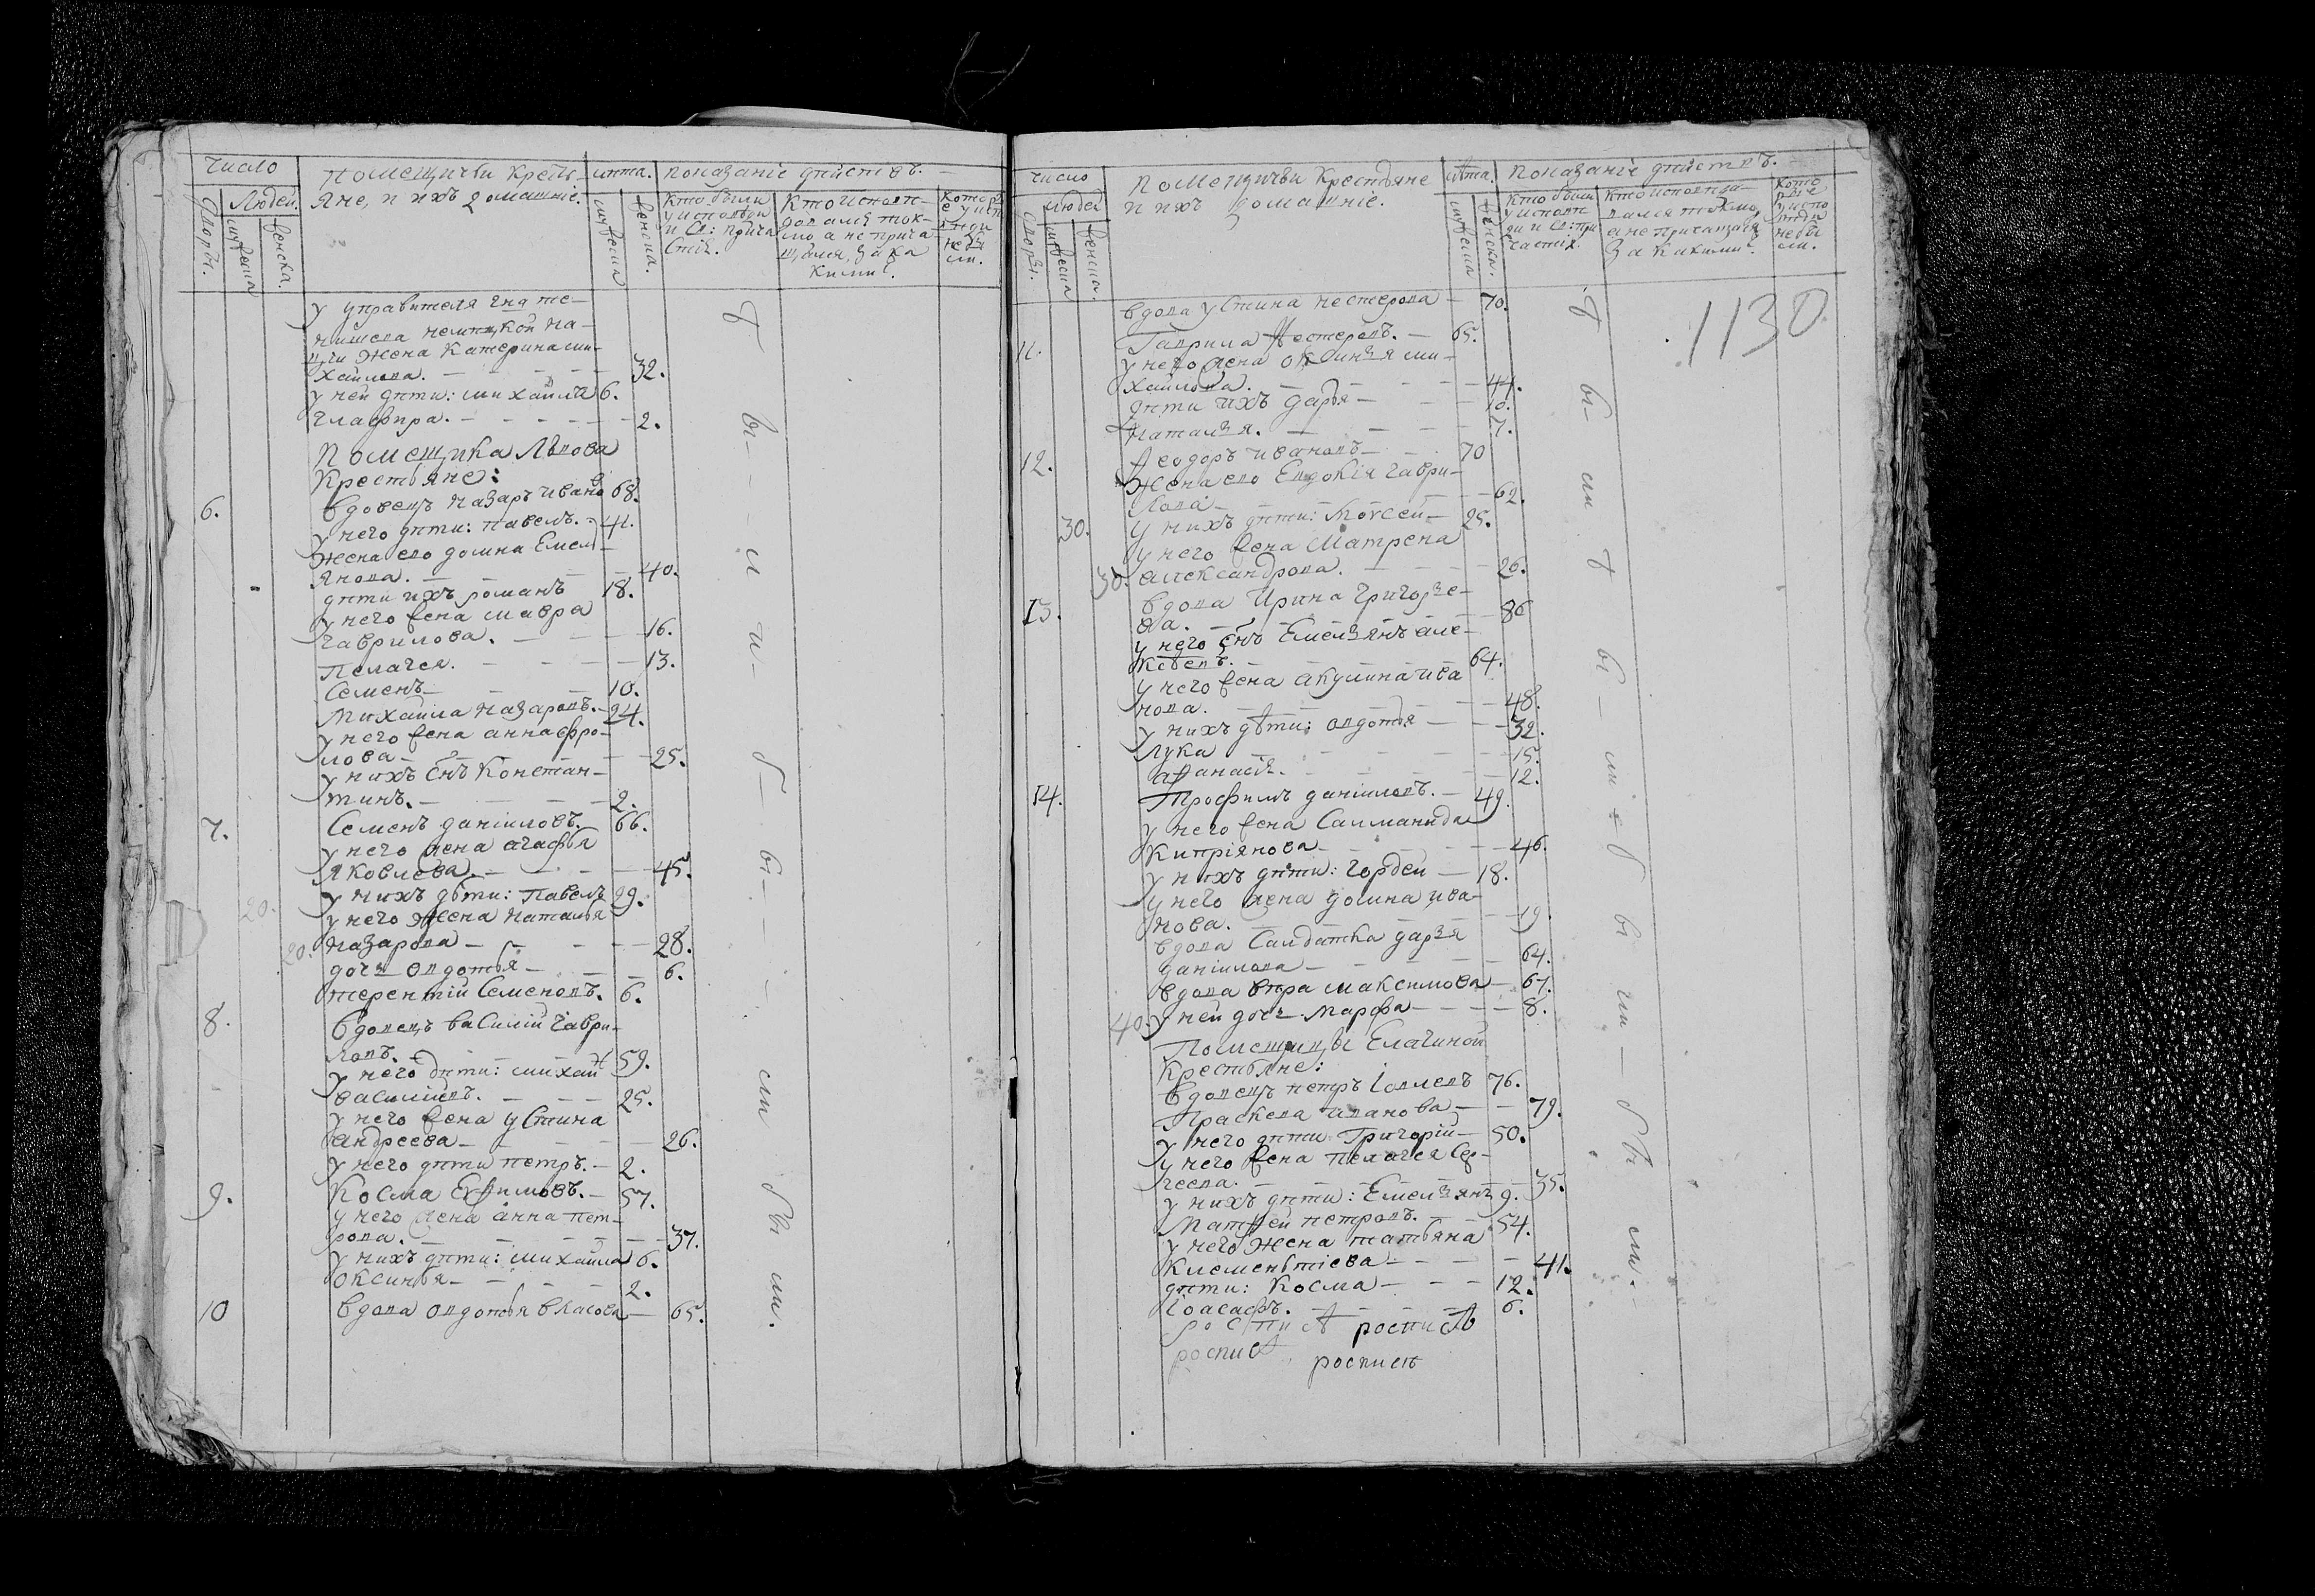 число
Людей.
дворы.
мужеска
женска.
Помещичьи кресть-
яне, и ихъ домашніе.
лѣта.
мужеска
женска.
показаніе действъ.
Кто были
у исповеди
и св: прича
стія.
Кто исповѣ-
довался ток-
мо а не прича-
щался, за ка
кими
у управителя гна те-
нишева немецкой на-
ціи жена Катерина ми-
хаилова. — 32.
у ней дѣти: михаила 6.
глафира. — 2.
Помещика Львова
Крестьяне:
6. вдовецъ назаръ ивано 68.
у него дѣти: павелъ. 41.
жена ево домна Емель-
янова. — 40.
дѣти ихъ романъ 18.
у него жена мавра
гаврилова. — 16.
Пелагея. — 13.
Семенъ — 10.
Михаила назаровъ. — 24.
у него жена анна фро-
лова — 25.
у нихъ снъ Констан-
тинъ. — 2.
7. Семенъ даниловъ. 66.
у него жена агафья
Яковлева. — 45.
20. у нихъ дѣти: Павелъ 29.
у него жена наталья
20. назарова — 28.
дочь авдотья — 6.
терентій Семеновъ. 6.
8. вдовецъ василій гаври-
ловъ. — 59.
у него дѣти: михаи
василіевъ. — 25.
у него жена устина
андреева — 26.
у него дѣти петръ. — 2.
9. Косма Ефимовъ. — 57.
у него жена анна пет-
рова. — 37.
у нихъ дѣти: михаила 6.
оксинья — 2.
10 вдова авдотья власова — 65.
бы — ли — бы — ли бы ли.
число
людей
дворы.
мужеска
женска.
Помещичьи крестьяне
и ихъ домашніе.
лѣта.
мужеска
женска.
Показаніе действъ.
Кто были
у исповѣ
ди и св: при
частія.
Кто исповѣда-
вался токмо,
а не причащался
за какими
кото
рые
у испо
веди
небы
ли.
1130
вдова устина нестерова — 70.
11. Гаврила нестеровъ. — 65.
у него жена оксинья ми-
хаилова. — 44.
дѣти ихъ дарья — 10.
наталья. — 7.
12. Ѳеодоръ ивановъ — 70
Жена ево Евдокія гаври-
лова — 62.
30. У нихъ дѣти: Моѵсей — 25.
у него жена Матрена
30. александрова. — 26.
13. вдова Ирина григорье-
ва. — 86
у него снъ Емельянъ але-
ксѣевъ. — 64.
у него жена акулина ива
нова. — 48.
у нихъ дѣти: авдотья — 32.
лука — 15.
афанасія. — 12.
14. Трофимъ даниловъ. — 49.
у него жена Саломанида
Кипріянова — 46.
у нихъ дѣти: гордей — 18.
у него жена домна ива-
нова. — 19.
вдова Салдатка дарья
данилова — 64.
вдова вѣра максимова — 67.
40. у ней дочь марфа — 8.
Помещицы Елагиной
Крестьяне:
вдовецъ петръ 76.
Праскева иванова — 79.
у него дѣти Григорій — 50.
у него жена пелагея Сер-
геева. — 35.
у нихъ дѣти: Емельянъ 9.
Матфей петровъ. — 54.
у него жена татьяна
Клементіева — 41.
дѣти: Косма — 12.
Іоасафъ. — 6.
роспись роспись
роспис роспись
бы — ли бы — ли — бы ли — бы ли.